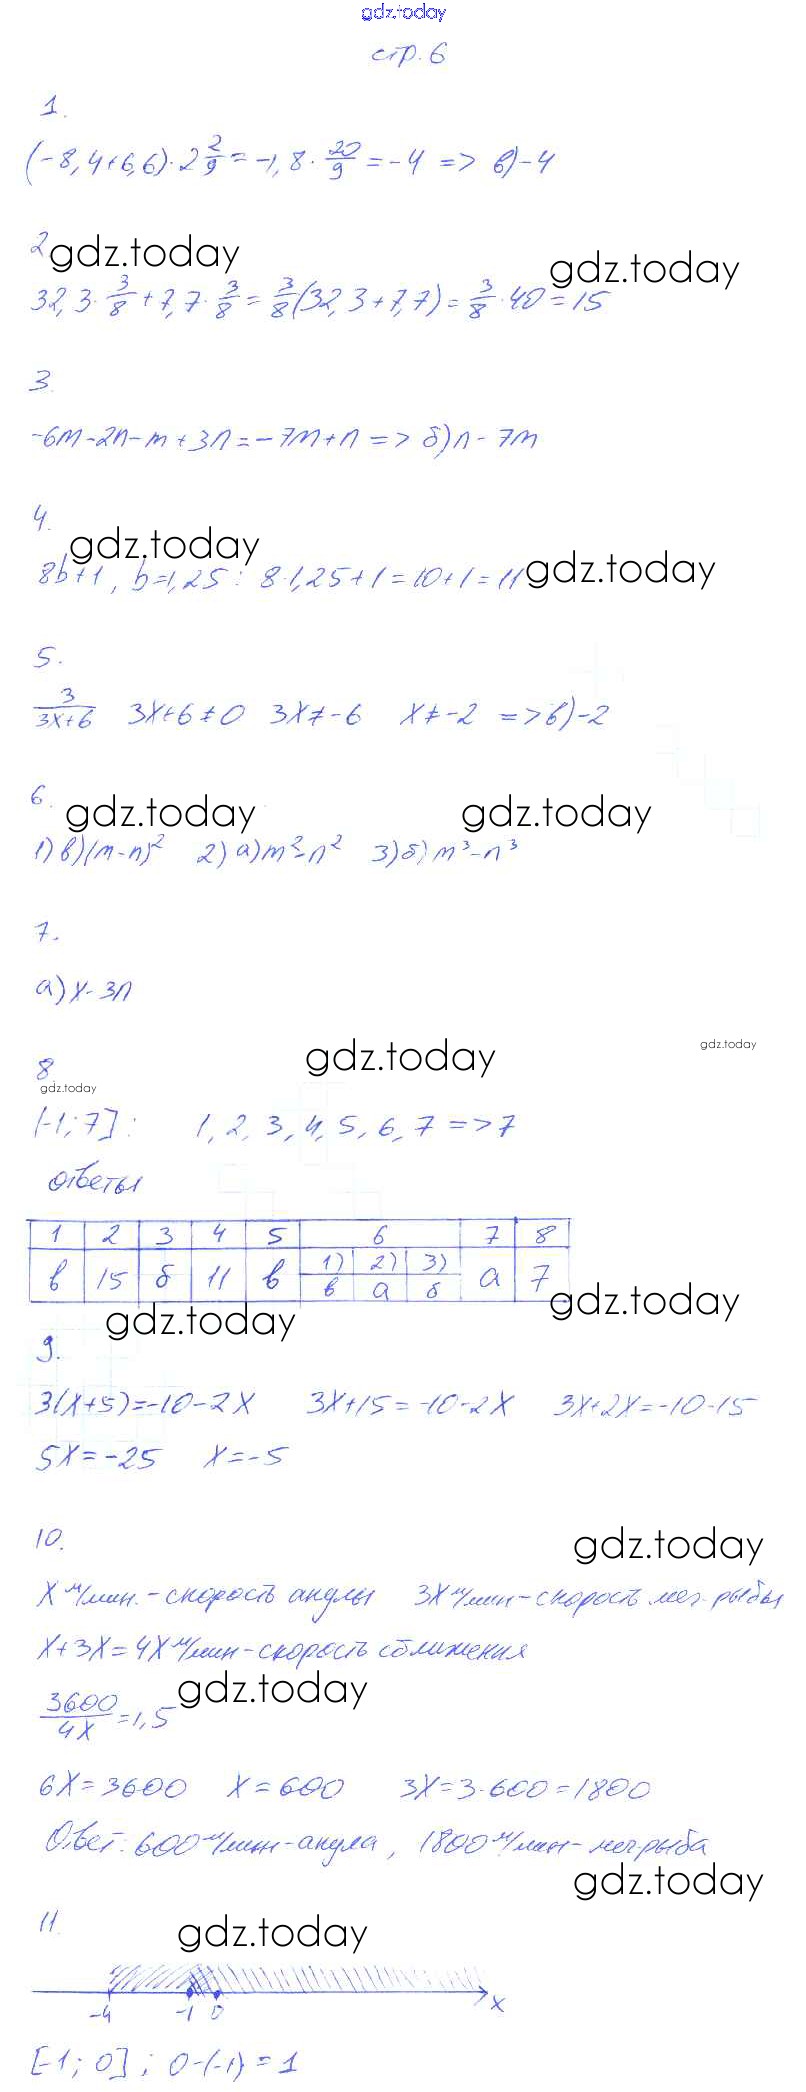 gdz.today
стр. 6
1.
(-8,4+6,6)·2 2/9 = -1,8 · 20/9 = -4 => в) -4
2 gdz.today gdz.today
32,3 · 3/8 + 7,7 · 3/8 = 3/8 (32,3+7,7) = 3/8 · 40 = 15
3.
-6m-2n-m+3n=-7m+n => б) n-7m
4.
gdz.today gdz.today
8b+1, b=1,25: 8·1,25+1=10+1=11
5.
3/(3x+6) 3x+6≠0 3x≠-6 x≠-2 => в) -2
6. gdz.today gdz.today
1) в) (m-n)² 2) а) m²-n² 3) б) m³-n³
7.
а) x-3n
8 gdz.today gdz.today
gdz.today
(-1;7]: 1, 2, 3, 4, 5, 6, 7 => 7
ответы
1 2 3 4 5 6 7 8
в 15 б 11 в 1) 2) 3) а 7
в а б
gdz.today gdz.today
9.
3(x+5)=-10-2x 3x+15=-10-2x 3x+2x=-10-15
5x=-25 x=-5
10. gdz.today
x м/мин. - скорость акулы 3x м/мин - скорость меч-рыбы
x+3x=4x м/мин - скорость сближения
3600/4x = 1,5 gdz.today
6x=3600 x=600 3x=3·600=1800
Ответ: 600 м/мин - акула, 1800 м/мин - меч-рыба
gdz.today
11. gdz.today
-4 -1 0 x
[-1; 0]; 0-(-1) = 1